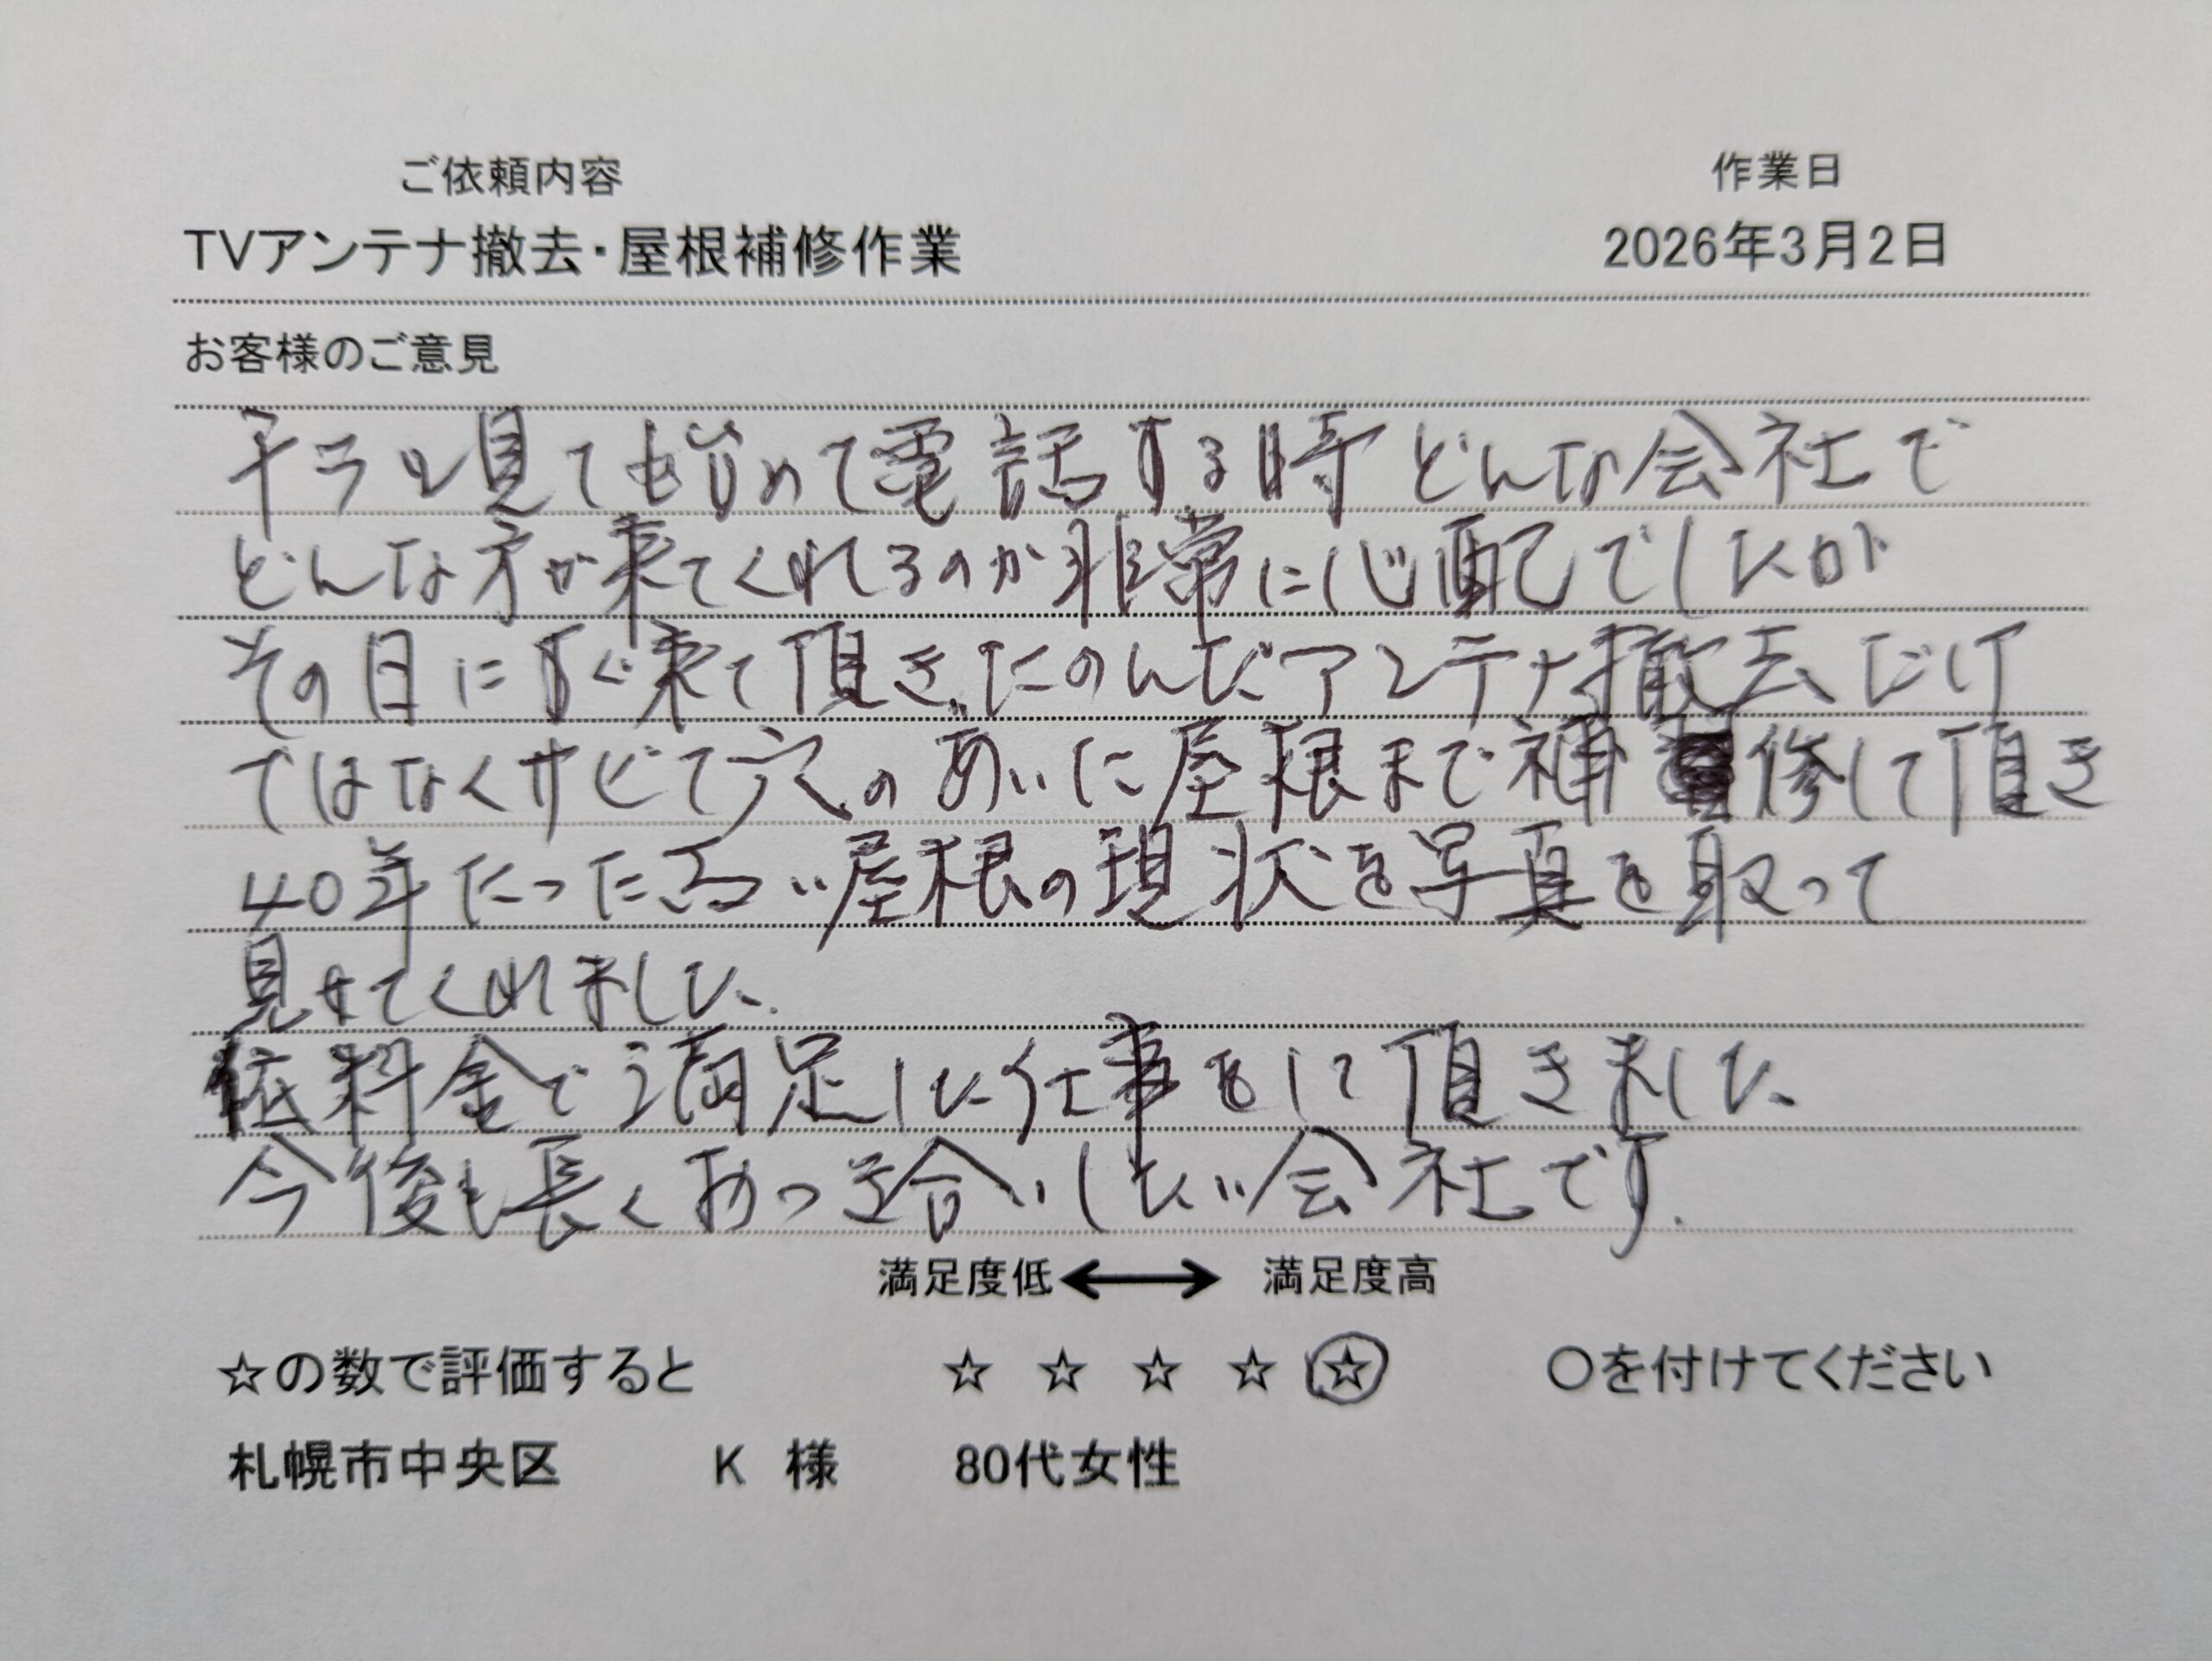 ご依頼内容 作業日
TVアンテナ撤去・屋根補修作業 2026年3月2日
お客様のご意見
チラシ見ても始めて電話する時どんな会社で
どんな方が来てくれるのか非常に心配でしたが
その日にすぐ来て頂きたのんだアンテナ撤去だけ
ではなくサビて穴のあいた屋根まで補修して頂き
40年たった古い屋根の現状を写真を取って
見せてくれました、
低料金で満足した仕事をして頂きました、
今後も長くおつき合いしたい会社です.
満足度低 満足度高
☆の数で評価すると ☆ ☆ ☆ ☆ ☆ ○を付けてください
札幌市中央区 K 様 80代女性